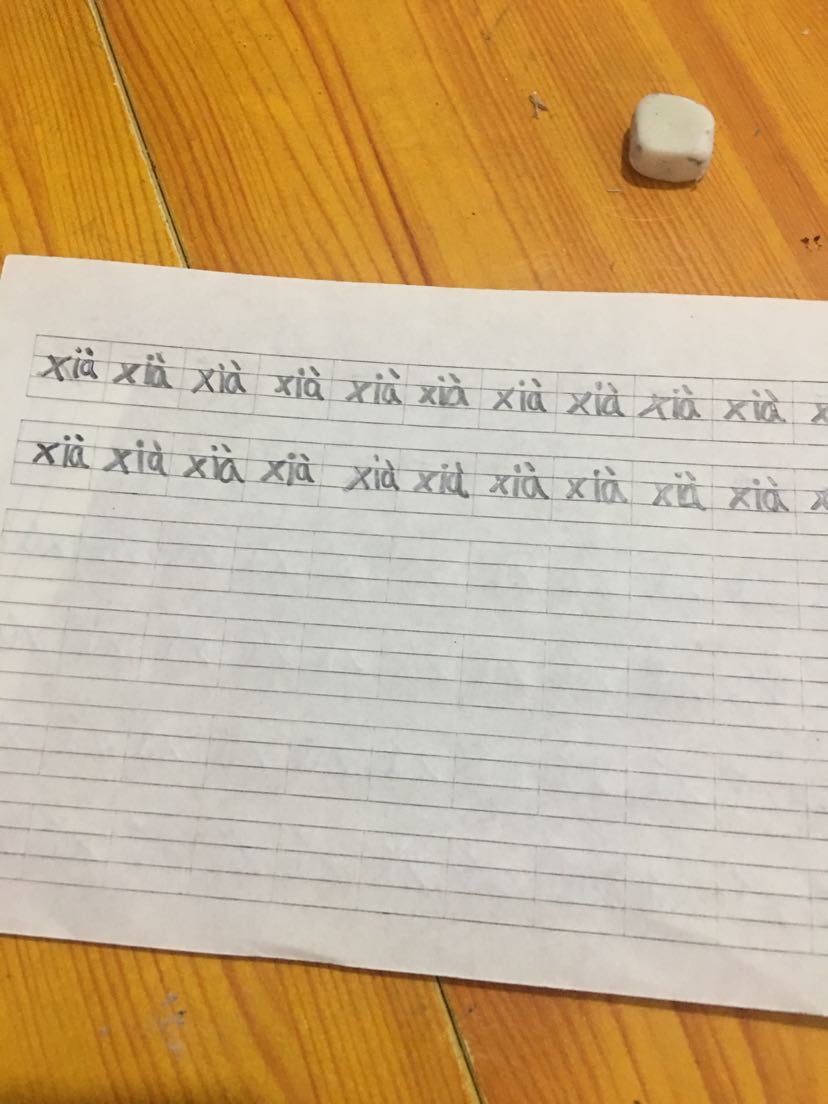 xià xià xià xià xià xià xià xià xià xià x
xià xià xià xià xià xià xià xià xià xià x